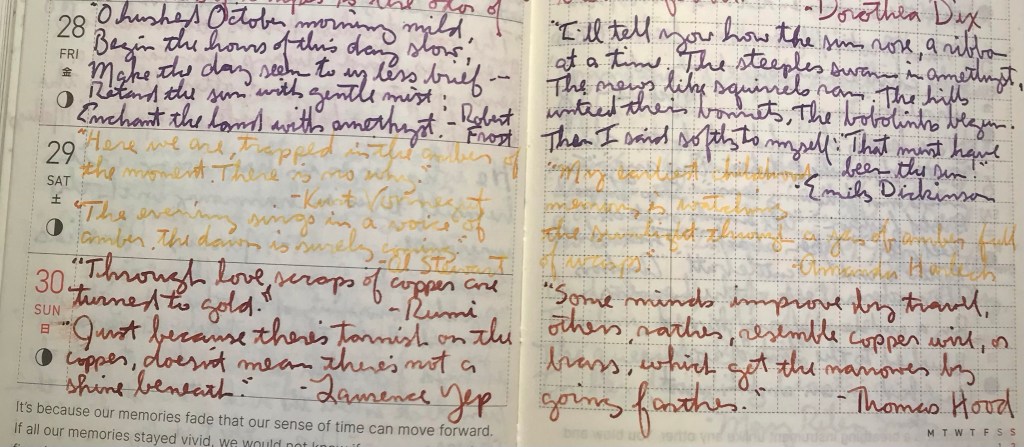 28
FRI
金
"O hushed October morning mild,
Begin the hours of this day slow,
Make the day seem to us less brief —
Retard the sun with gentle mist;
Enchant the land with amethyst." - Robert
Frost
29
SAT
土
"Here we are, trapped in the amber of
the moment. There is no why."
- Kurt Vonnegut
"The evening sings in a voice of
amber, the dawn is surely coming."
- Al Stewart
30
SUN
日
"Through love, scraps of copper are
turned to gold." - Rumi
"Just because there's tarnish on the
copper, doesn't mean there's not a
shine beneath." - Laurence Yep
It's because our memories fade that our sense of time can move forward.
If all our memories stayed vivid, we would not know if
- Dorothea Dix
"I'll tell you how the sun rose, a ribbon
at a time. The steeples swam in amethyst,
The news like squirrels ran. The hills
untied their bonnets, The bobolinks begun.
Then I said softly to myself: "That must have
been the sun!"
- Emily Dickinson
"My earliest childhood
memory is watching
the sunlight through a jar of amber full
of wasps." - Amanda Harlech
"Some minds improve by travel,
others, rather, resemble copper wire, or
brass, which get the narrower by
going farther." - Thomas Hood
M T W T F S S